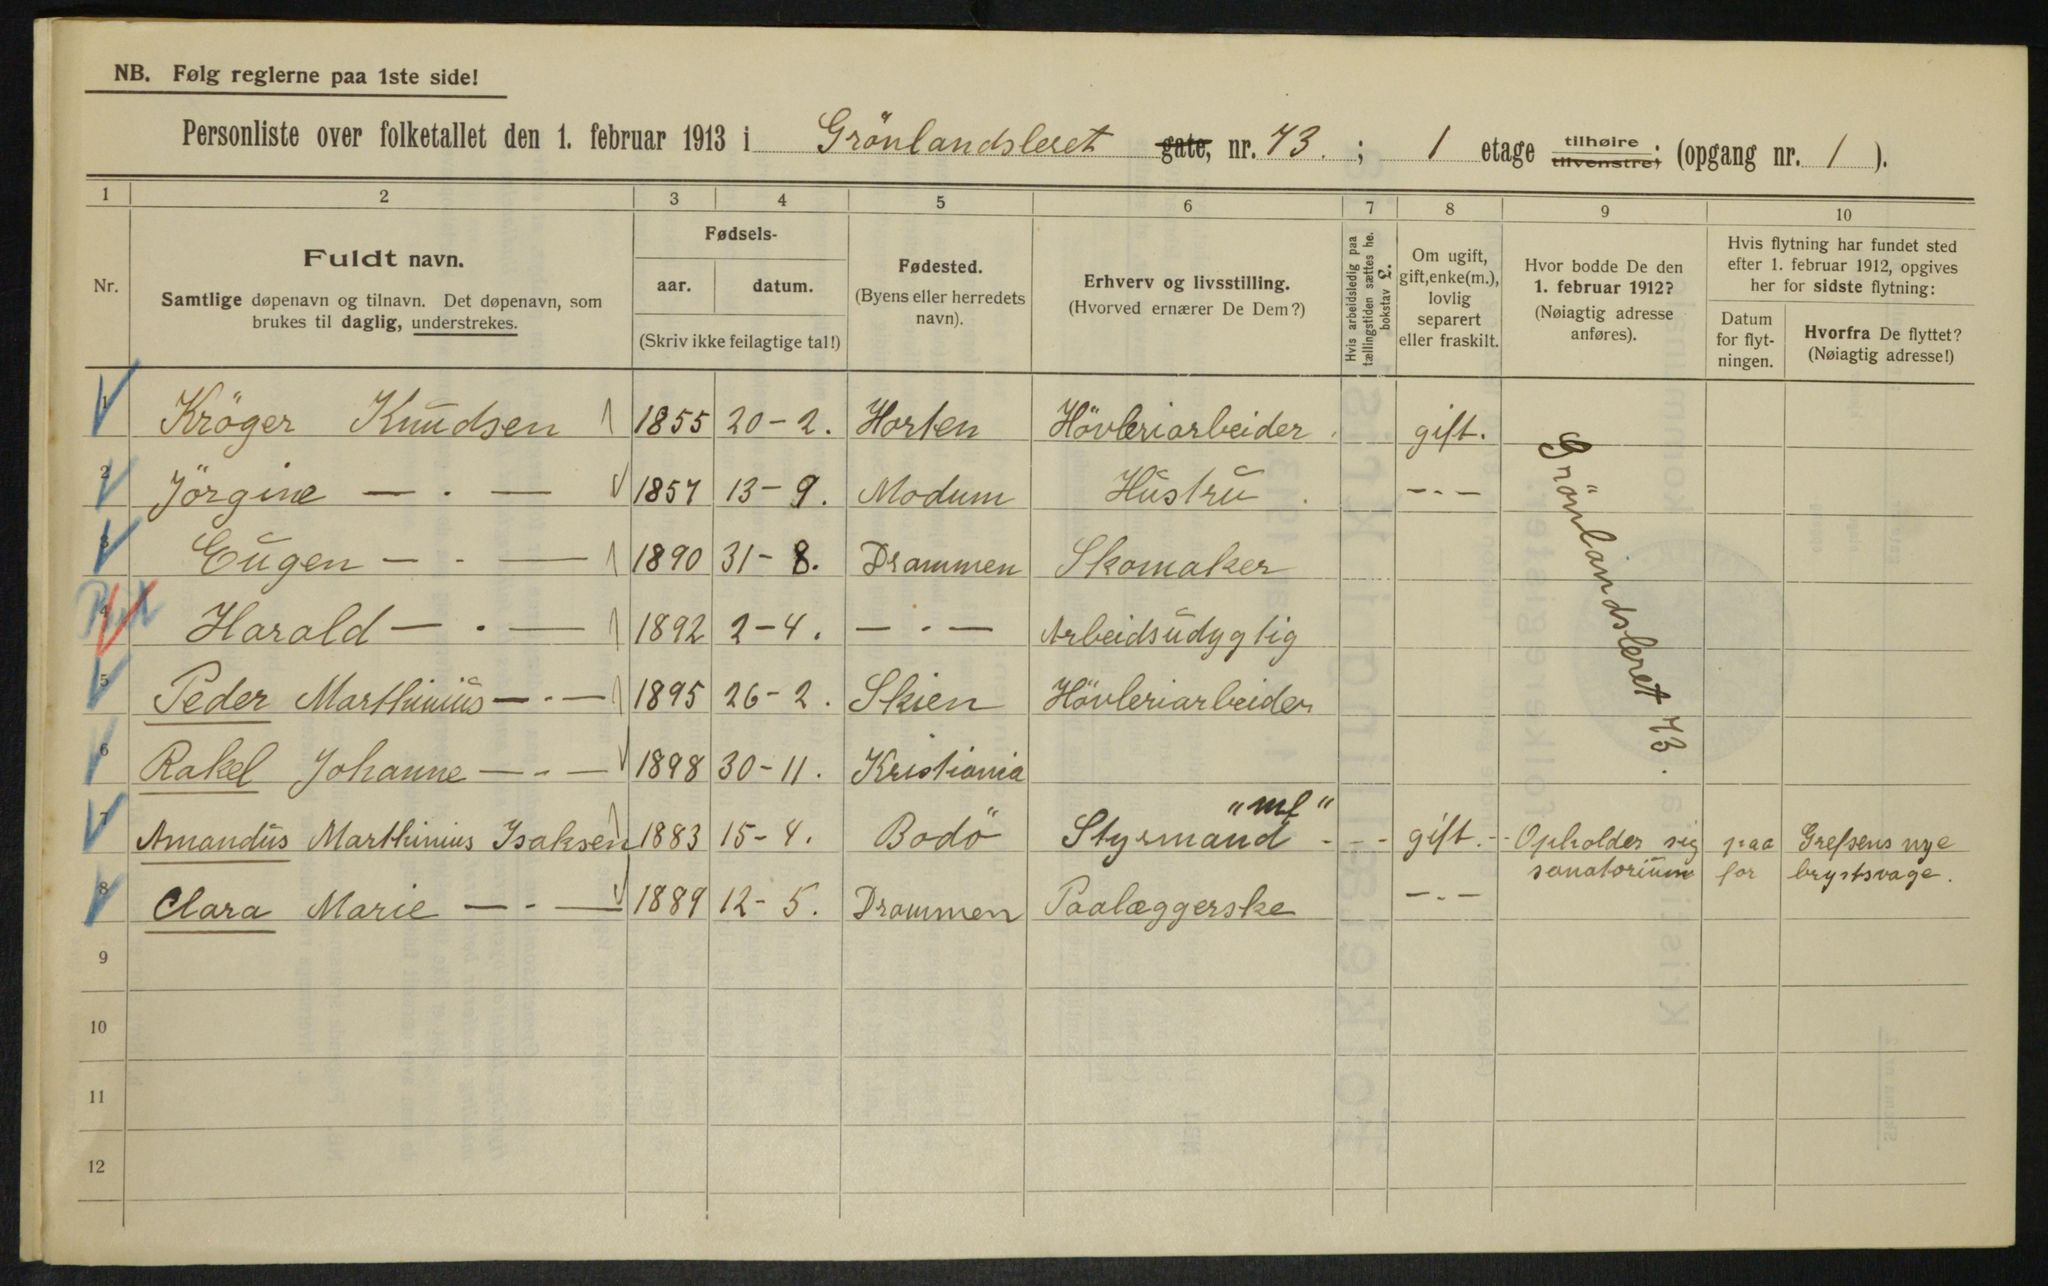 NB. Følg reglerne paa 1ste side!
Personliste over folketallet den 1. februar 1913 i Grönlandsleret gate, nr. 73. ; 1 etage tilhøire tilvenstre; (opgang nr. 1 ).
1 2 3 4 5 6 7 8 9 10
Nr.
Fuldt navn.
Samtlige døpenavn og tilnavn. Det døpenavn, som
brukes til daglig, understrekes.
Fødsels-
aar. datum.
(Skriv ikke feilagtige tal!)
Fødested.
(Byens eller herredets
navn).
Erhverv og livsstilling.
(Hvorved ernærer De Dem?)
Hvis arbeidsledig paa
tællingstiden sættes he.
bokstav L.
Om ugift,
gift, enke(m.),
lovlig
separert
eller fraskilt.
Hvor bodde De den
1. februar 1912?
(Nøiagtig adresse
anføres).
Hvis flytning har fundet sted
efter 1. februar 1912, opgives
her for sidste flytning:
Datum
for flyt-
ningen.
Hvorfra De flyttet?
(Nøiagtig adresse!)
1 Kröger Knudsen 1855 20-2. Horten Hövleriarbeider. gift.
2 Jörgine — . — 1857 13-9. Modum Hustru. — . —
3 Eugen — . — 1890 31-8. Drammen Skomaker
4 Harald — . — 1892 2-4. — . — Arbeidsudygtig
5 Peder Marthinius — . — 1895 26-2. Skien Hövleriarbeider
6 Rakel Johanne — . — 1898 30-11. Kristiania
Grönlandsleret 73.
7 Amandus Marthinius Isaksen 1883 15-4. Bodö Styrmand "mf" - - - gift. - - Opholder sig paa Grefsens nye
sanatorium for brystsvage.
8 Clara Marie — . — 1889 12-5. Drammen Paalæggerske — . —
9
10
11
12